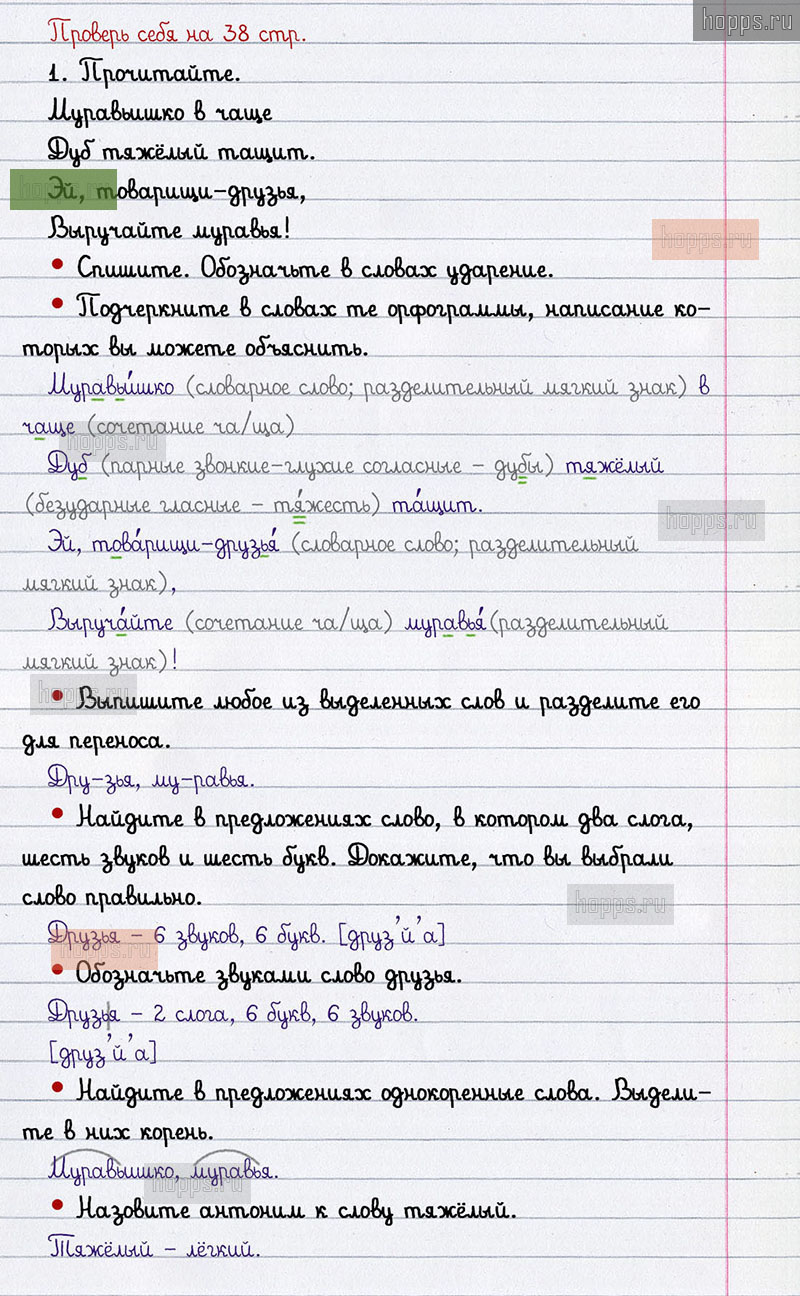 hopps.ru
Проверь себя на 38 стр.
1. Прочитайте.
Муравьишко в чаще
Дуб тяжёлый тащит.
Эй, товарищи-друзья,
Выручайте муравья!
• Спишите. Обозначьте в словах ударение.
• Подчеркните в словах те орфограммы, написание ко-
торых вы можете объяснить.
Муравьи́шко (словарное слово; разделительный мягкий знак) в
чаще (сочетание ча/ща)
Дуб (парные звонкие-глухие согласные – дубы) тяжёлый
(безударные гласные – тя́жесть) та́щит.
Эй, това́рищи-друзья́ (словарное слово; разделительный
мягкий знак),
Выруча́йте (сочетание ча/ща) муравья́ (разделительный
мягкий знак)!
• Выпишите любое из выделенных слов и разделите его
для переноса.
Дру-зья, му-равья.
• Найдите в предложениях слово, в котором два слога,
шесть звуков и шесть букв. Докажите, что вы выбрали
слово правильно.
Друзья – 6 звуков, 6 букв. [друз'й'а]
• Обозначьте звуками слово друзья.
Друзья – 2 слога, 6 букв, 6 звуков.
[друз'й'а]
• Найдите в предложениях однокоренные слова. Выдели-
те в них корень.
Муравьишко, муравья.
• Назовите антоним к слову тяжёлый.
Тяжёлый – лёгкий.